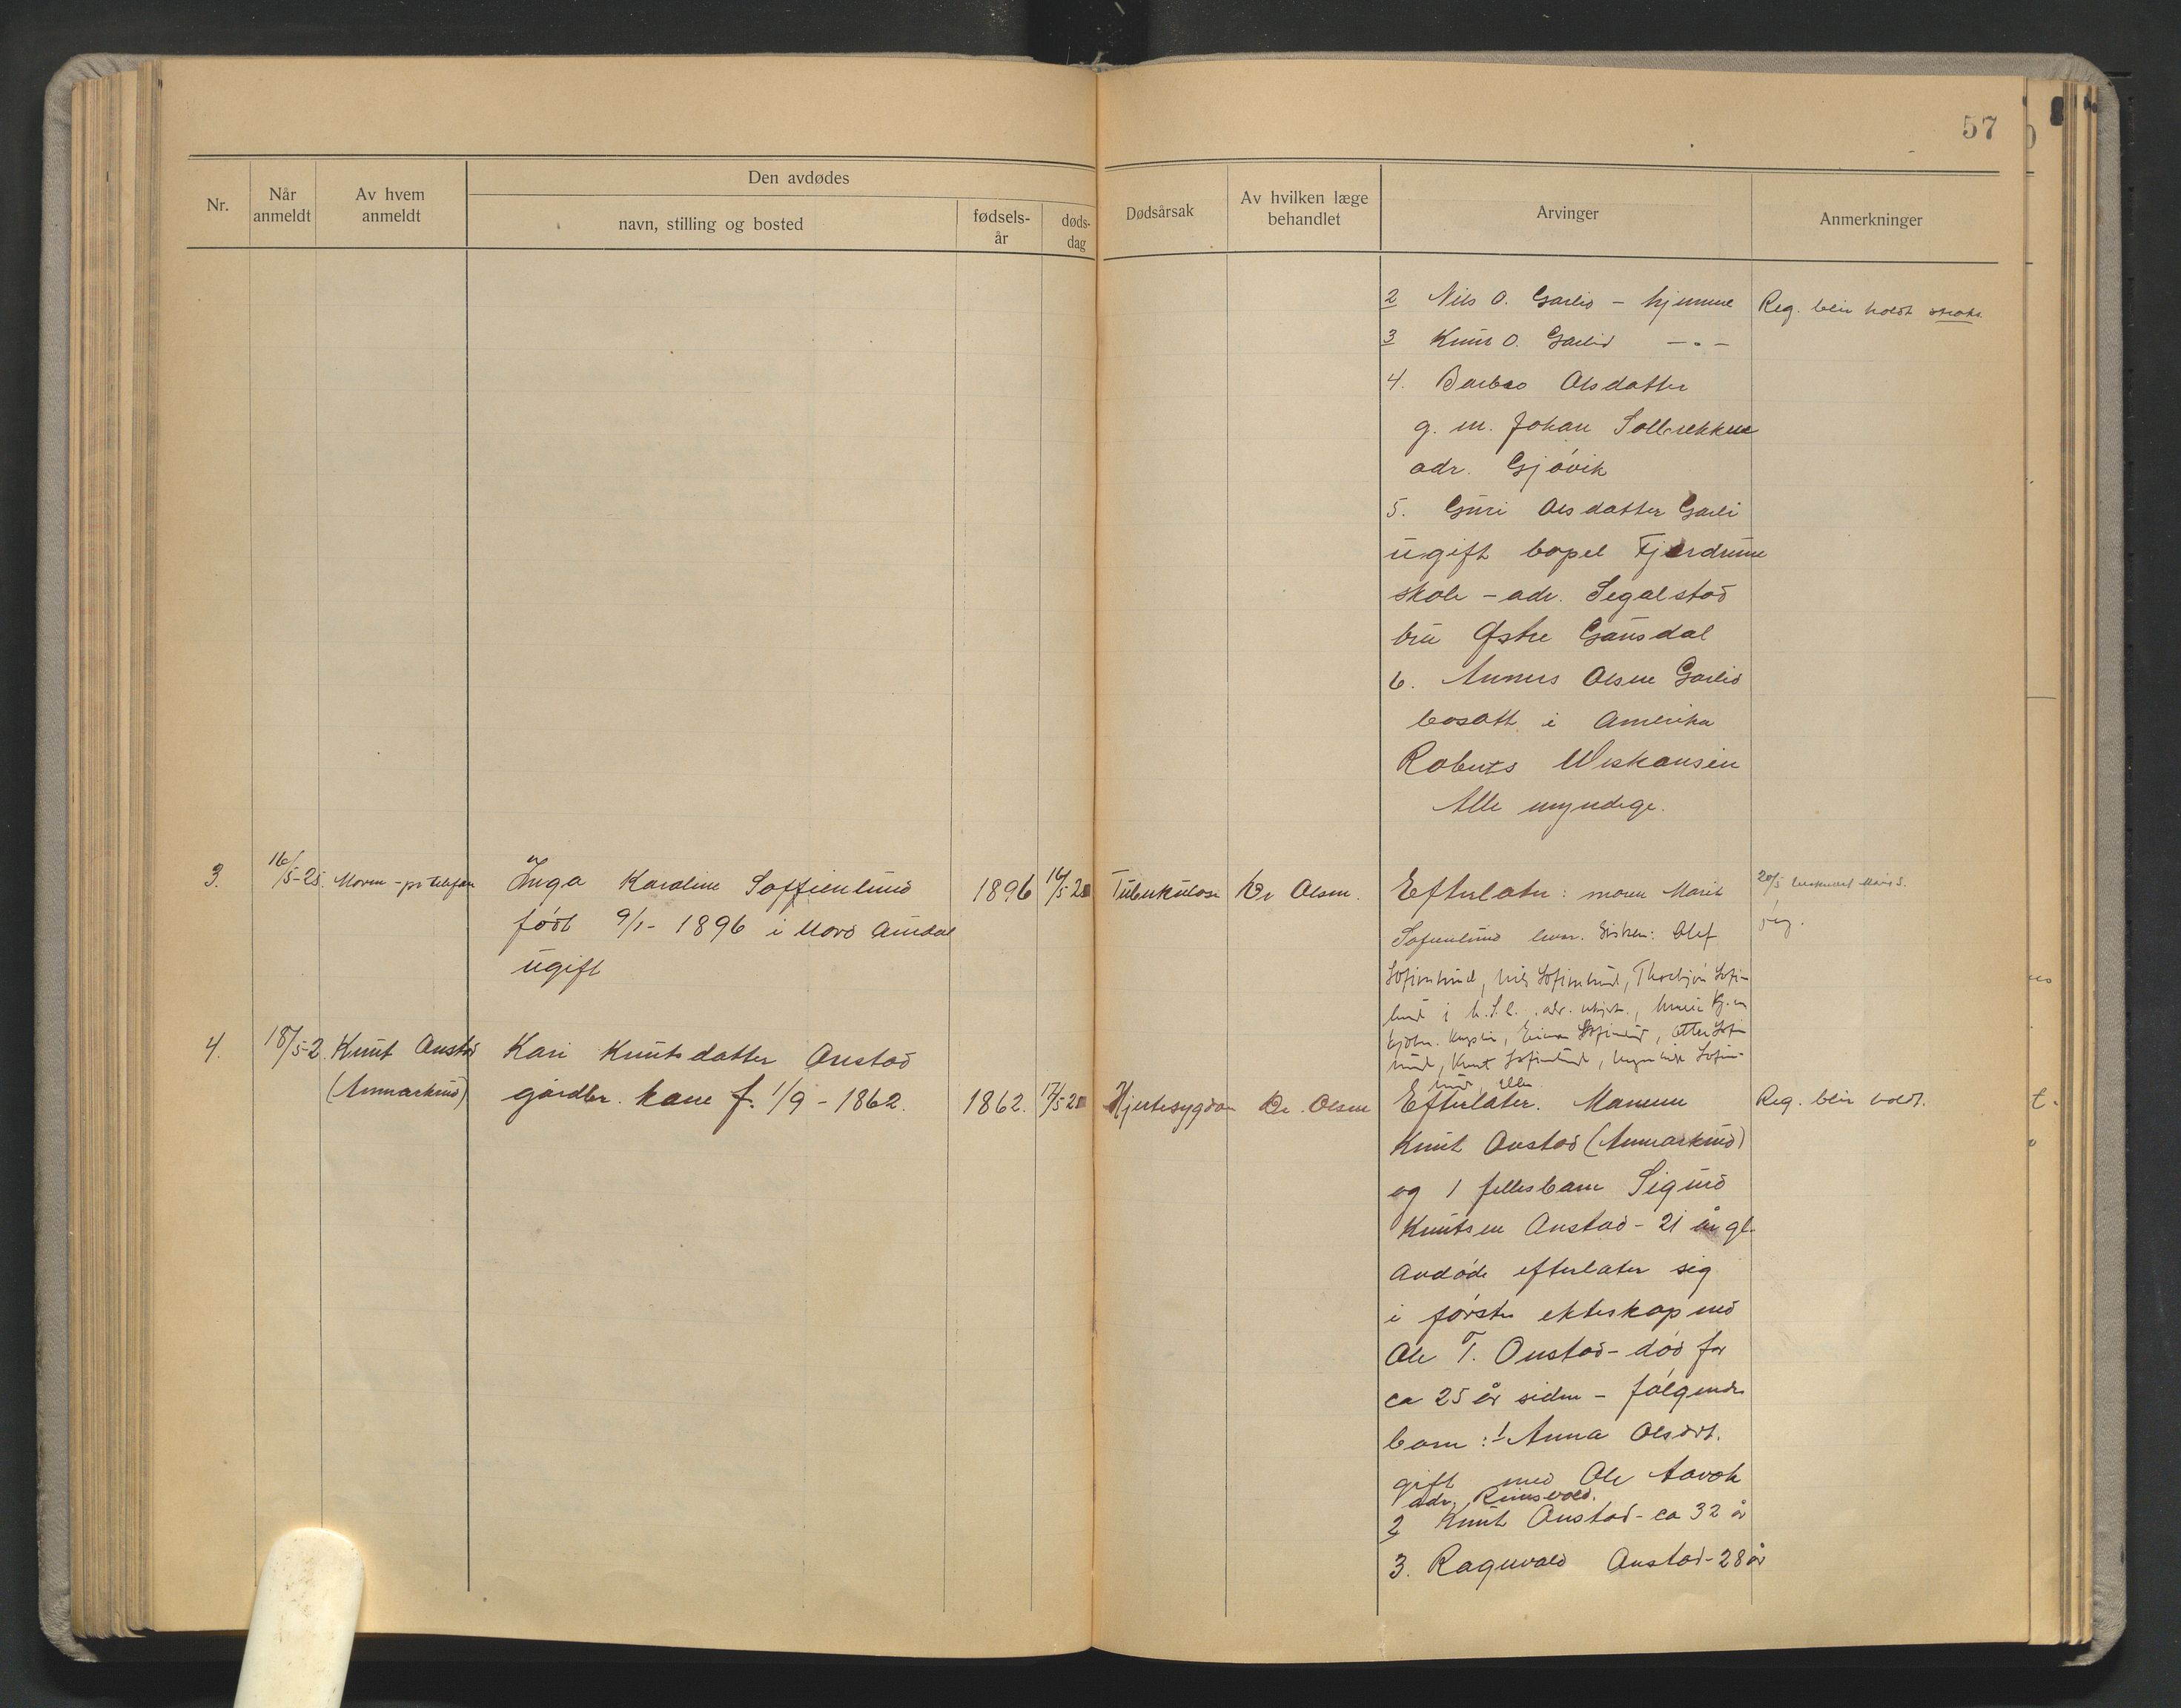 57
Nr.
Når anmeldt
Av hvem anmeldt
Den avdødes
navn, stilling og bosted
fødsels-år
døds-dag
Dødsårsak
Av hvilken læge behandlet
Arvinger
Anmerkninger
2 Nils O. Garlid - hjemme
Reg. blir holdt straks.
3 Knut O. Garlid — " —
4. Barbro Olsdatter
g. m. Johan Solbrekken
adr. Gjøvik
5. Guri Olsdatter Garli
ugift bopel Fjerdrum
skole - adr. Segalstad
bru Østre Gausdal
6. Olsen Garlid
bosatt i Amerika
Roberts Wiskonsin
Alle myndige.
3. 16/5-25. Moren - pr telefon
Inga Karoline Soffienlund
1896 16/5 25
Tuberkulose
Dr Olsen.
Efterlater: moren Marit
20/5
født 9/1- 1896 i Nord Aurdal
Sofienlund Sisken: Olaf
ugift
Sofienlund, Nils Sofienlund, Thorbjørn Sofien-
lund i
Sofienlund, Sofien-
lund, Knut Sofienlund, Sofien-
lund, alle
4. 18/5-2. Knut Onstad
(Aunmarkrud)
Kari Knutsdatter Onstad
gårdbr. kone f. 1/9 - 1862.
1862. 17/5-25
Hjertesygdom
Dr. Olsen
Efterlater. Mannen
Reg. blir holdt.
Knut Onstad (Aunmarkrud)
og 1 fellesbarn Sigurd
Knutsen Onstad - 21 år gl.
Avdøde efterlater sig
i første ekteskap med
Ole T. Onstad - død for
ca 25 år siden - følgende
barn: 1 Anna Olsdt.
gift med Ole
adr.
2 Knut Onstad - ca 32 år
3. Ragnvald Onstad - 28 år